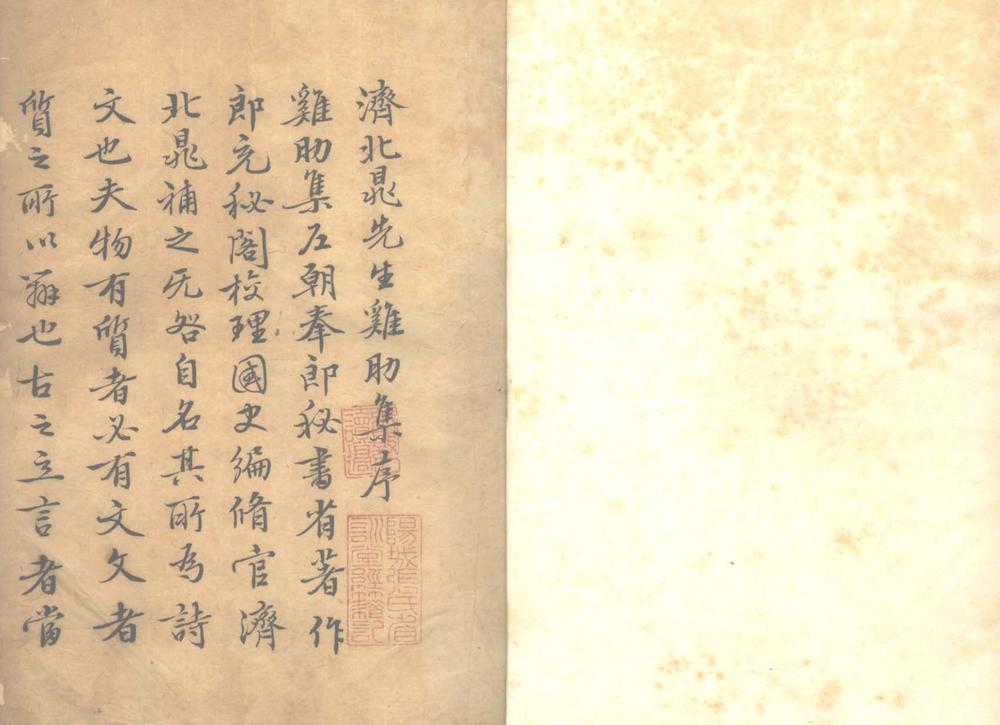 濟北晁先生雞肋集序
雞肋集左朝奉郎秘書省著作
郎充秘閣校理國史編脩官濟
北晁補之无咎自名其所為詩
文也夫物有質者必有文文者
質之所以辨也古之立言者當
陽城張氏省訓堂經籍記